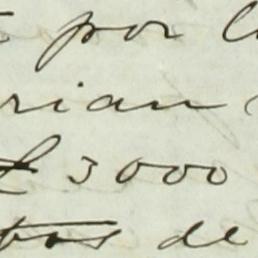 por
rian
£ 3000
tos de